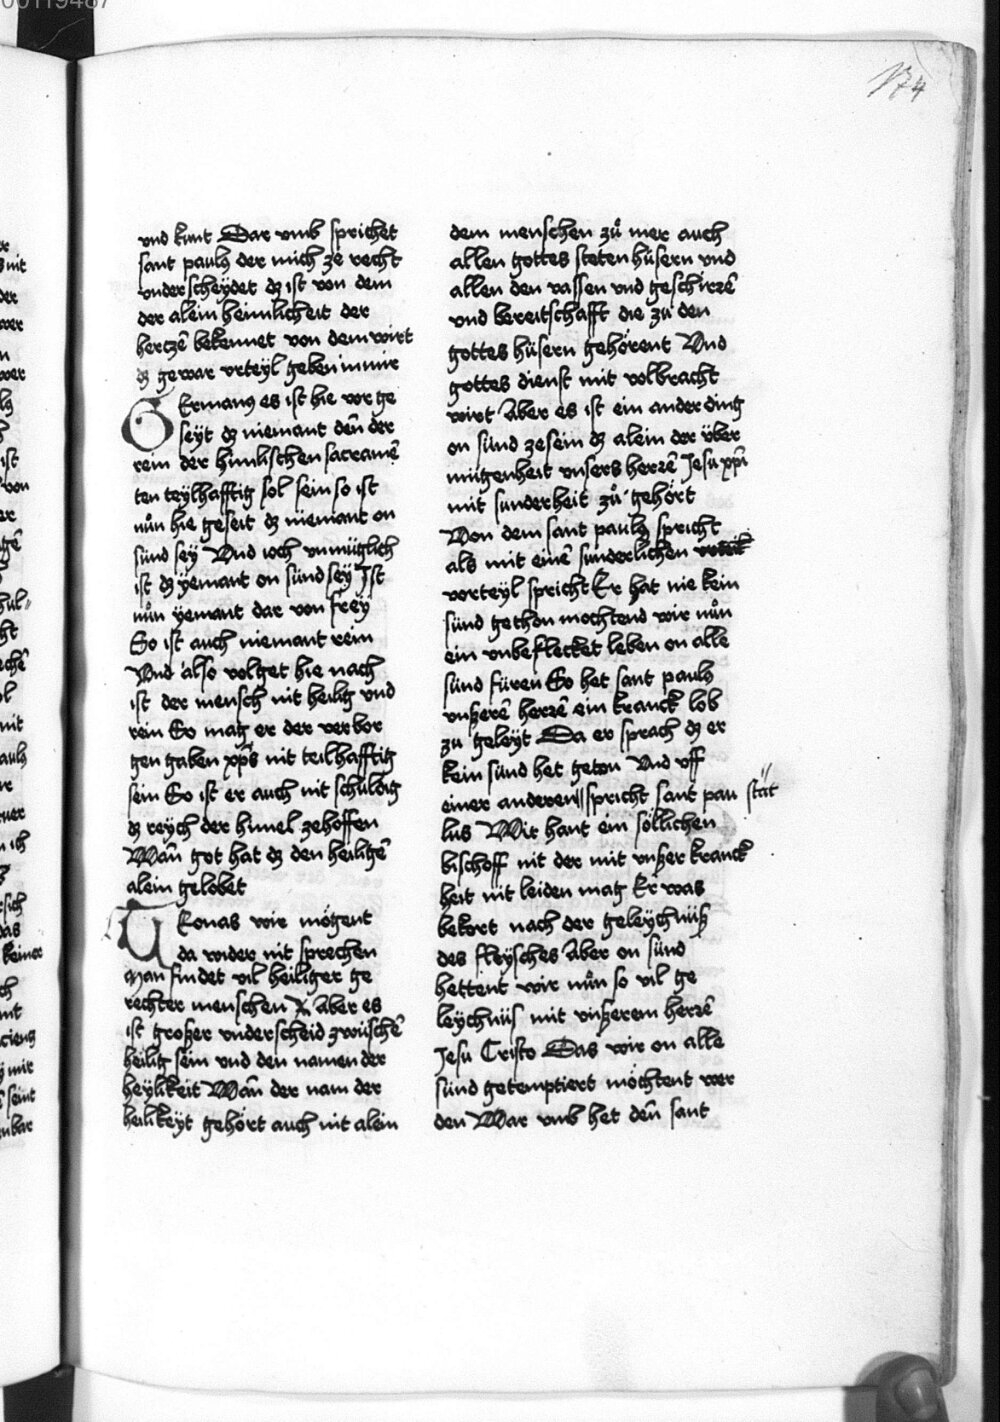 00119487
174
vnd kunt Dar vmb sprichet
sant paulꝰ der mich ze recht
vnderscheydet dz ist von dem
der alein heimlicheit der
herczē bekennet von dem wirt
dz gewar vrteyl geben in mir
GErmanꝰ es ist hie vor ge
seÿt dz niemant deñ der
rein der himlischen sacramē
ten teÿlhafftig sol sein so ist
nůn hie geseit dz niemant on
sünd seÿ Vnd ioch vnmüglich
ist dz ÿemant on sünd seÿ Ist
nůn ÿemant dar von freÿ
So ist auch niemant rein
Vnd also volget hie nach
ist der mensch nit heilig vnd
rein So mag er der verbor
gen gaben xp̄s nit teilhafftig
sein So ist er auch nit schuldig
dz reÿch der himel zehoffen
Wañ got hat dz den heiligē
alein gelobet
Eonas wie mögent
da wider nit sprechen
Man findet vil heiliger ge
rechter menschen Aber es
ist großer vnderscheid zwüschē
heilig sein vnd den namen der
heÿlikeit Wañ der nam der
heilikeÿt gehört auch nit alein
dem menschen zů mer auch
allen gottes steten hüsern vnd
allen den vassen vnd geschirrē
vnd bereitschafft die zů den
gottes hüsern gehörent Vnd
gottes dienst mit volbracht
wirt Aber es ist ein ander ding
on sünd zesein dz alein der über
mügenheit vnsers herrē Jesu xp̄i
mit sunderheit zů gehört
Von dem sant paulꝰ spricht
als mit einē sunderlichen
vorteÿl spricht Er hat nie kein
sünd gethon mochtend wir nůn
ein vnbeflecket leben on alle
sünd füren So het sant paulꝰ
vnßerē herrē ein kranck lob
zu geleÿt Da er sprach dz er
kein sünd het geton Vnd vff
einer anderen || spricht sant pau || stat
lus Wir hant ein söllichen
bischoff nit der mit vnßer kranck
heit nit leiden mag Er was
bekort nach der geleÿchnüß
des fleÿsches Aber on sünd
hettent wir nůn so vil ge
leÿchnüs mit vnßerem herrē
Jesu Cristo Das wir on alle
sünd getemptiert möchtent wer
den War vmb het deñ sant